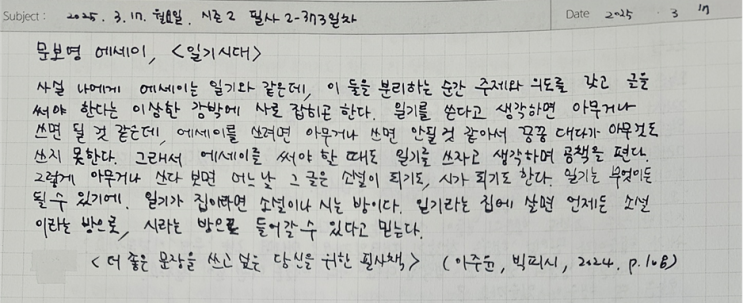 Subject : 2025. 3. 17. 월요일. 시즌 2 필사 2-373일차 Date 2025 3 17
문보영 에세이, <일기시대>
사실 나에게 에세이는 일기와 같은데, 이 둘을 분리하는 순간 주제와 의도를 갖고 글을
써야 한다는 이상한 강박에 사로 잡히곤 한다. 일기를 쓴다고 생각하면 아무거나
쓰면 될 것 같은데, 에세이를 쓰려면 아무거나 쓰면 안될 것 같아서 끙끙 대다가 아무것도
쓰지 못한다. 그래서 에세이를 써야 할 때도 일기를 쓰자고 생각하며 공책을 편다.
그렇게 아무거나 쓰다 보면 어느날 그 글은 소설이 되기도, 시가 되기도 한다. 일기는 무엇이든
될 수 있기에. 일기가 집이라면 소설이나 시는 방이다. 일기라는 집에 살면 언제든 소설
이라는 방으로, 시라는 방으로 들어갈 수 있다고 믿는다.
<더 좋은 문장을 쓰고 싶은 당신을 위한 필사책> (이주윤, 빅피시, 2024. p.108)